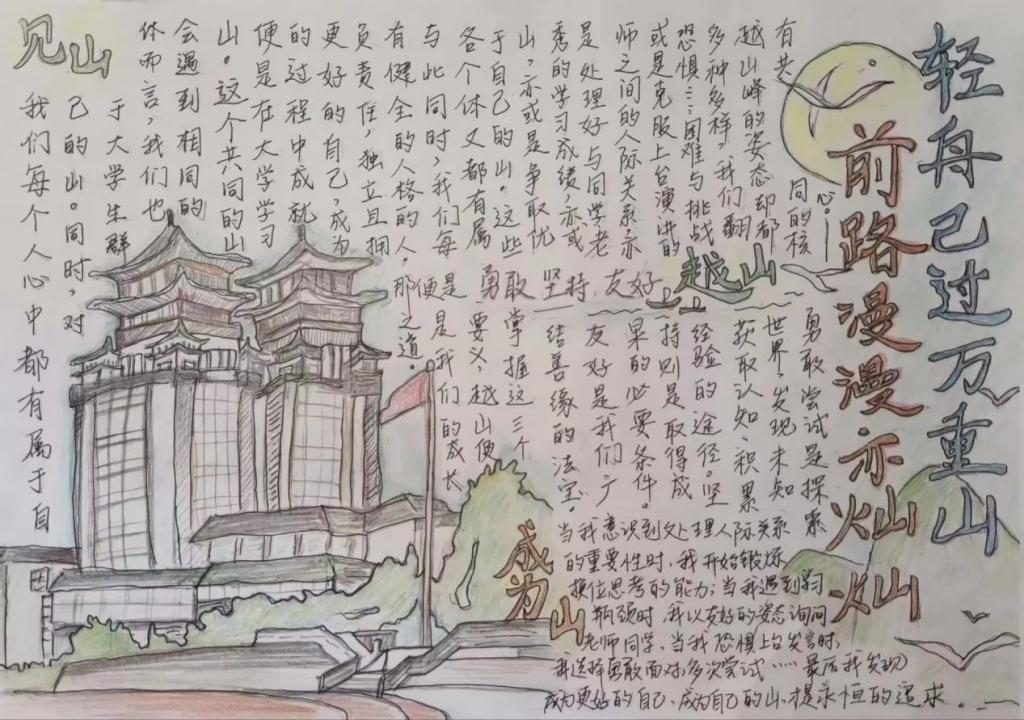 轻舟已过万重山
前路漫漫亦灿灿
见山
我们每个人心中都有属于自
己的山。同时，对
于大学生群
体而言，我们也
会遇到相同的
山。这个共同的山
便是在大学学习
的过程中成就
更好的自己，成为
负责任，独立且拥
有健全的人格的人。
与此同时，我们每
各个体又都有属
于自己的山。这些
山，亦或是争取优
秀的学习成绩，亦或
是处理好与同学老
师之间的人际关系亦
或是克服上台演讲的
恐惧……困难与挑战
多种多样，我们翻
越山峰的姿态却都
有共
同的核
心。
越山
那便是 勇敢 坚持、友好
勇敢尝试是探索
世界，发现未知
获取认知，积累
经验的途径。坚
持则是取得成
果的必要条件。
友好是我们广
结善缘的法宝。
掌握这三个
要义，越山便
是我们的成长
之道。
成为山
当我意识到处理人际关系
的重要性时，我开始锻炼
换位思考的能力；当我遇到学习
瓶颈时，我以友好的姿态询问
老师同学，当我恐惧上台发言时，
我选择勇敢面对，多次尝试……最后我发现
成为更好的自己、成为自己的山、是永恒的追求...